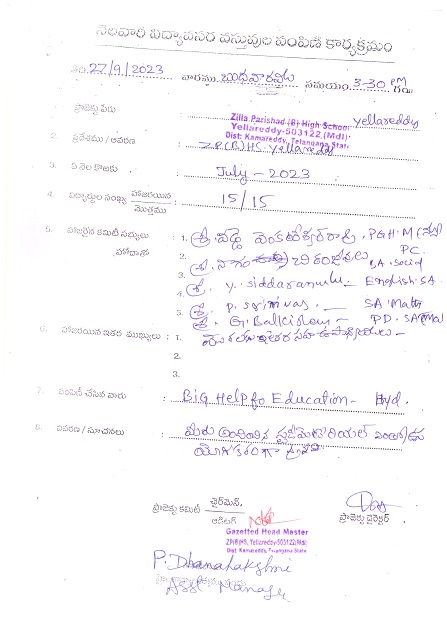 నెలవారీ విద్యావసర వస్తువుల పంపిణీ కార్యక్రమం
తేది.27/9/2023 వారము బుధవారం సమయం 3-30 PM గం॥
1. ప్రాజెక్టు పేరు Yellareddy
Zilla Parishad (B) High School
Yellareddy-503122,(Mdl)
Dist: Kamareddy, Telangana State
2. ప్రదేశము / ఆవరణ Z.P.(B)HS. Yellareddy
3. ఏ నెల కొరకు July - 2023
4. విద్యార్థుల సంఖ్య హాజరయిన / మొత్తము 15/15
5. హాజరైన కమిటీ సభ్యులు 1. శ్రీ. వెంకటేశ్వరరావు, PGHM
హోదాతో 2. శ్రీ. నాగం చిరంజీవులు PC
3. SA. Social
4. శ్రీ. y. siddaramulu - English SA
5. శ్రీ. p. srinivas. - SA. Maths
శ్రీ. G. Balkishan - PD. SA
6. హాజరయిన ఇతర ముఖ్యులు : 1. ఇతర సహ ఉపాధ్యాయులు -
2.
3.
7. పంపిణీ చేసిన వారు BIG HELP for Education - Hyd.
8. వివరణ / సూచనలు మీరు అందించిన స్టడీమెటీరియల్
ప్రాజెక్టు కమిటీ చైర్‌మెన్.
ఆడిటర్ ప్రాజెక్టు డైరెక్టర్
Gazetted Head Master
ZP(B)HS, Yellareddy-503122(Mdl)
Dist: Kamareddy, Telangana State
P. Dhanalakshmi
Asst Manager